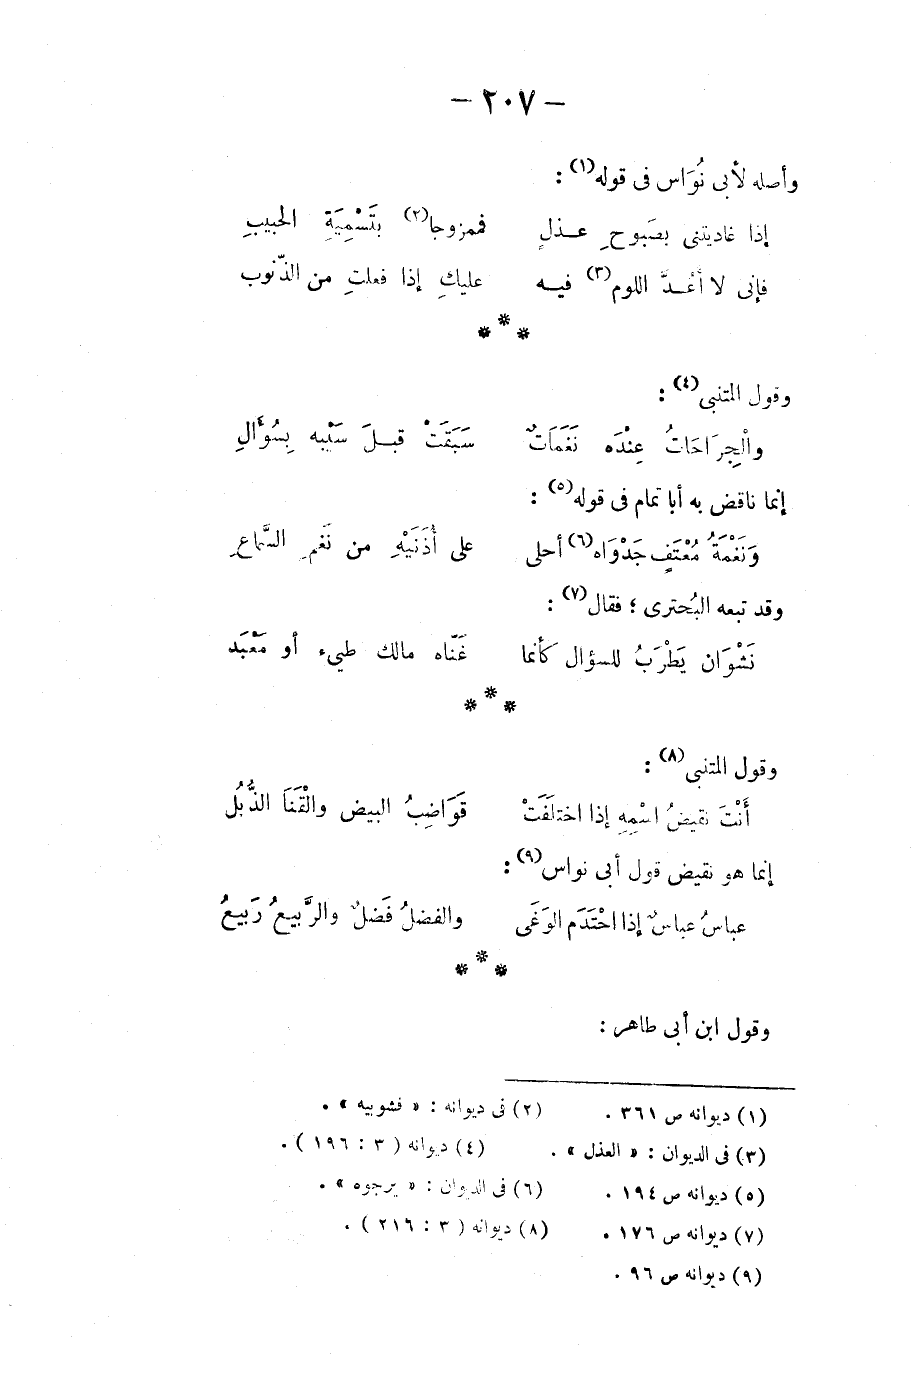 — ٢٠٧ —
وأصله لأبى نُوَاس فى قوله(١) :
إذا غاديتنى بصَبوحِ عـذلٍ فممزوجا(٢) بتَسْمِيَةِ الحبيبِ
فإنى لا أَعُـدَّ اللوم(٣) فيـه عليكِ إذا فعلتِ من الذّنوب
* * *
وقول المتنبى(٤) :
والْجِرَاحَاتُ عِنْدَه نَغَمَاتٌ سَبَقَتْ قبـلَ سَيْبه بِسُؤَالِ
إنما ناقض به أبا تمام فى قوله(٥) :
وَنَغْمَةُ مُعْتَفٍ جَدْوَاه(٦) أحلى على أُذَنَيْهِ من نَغَمِ السَّماعِ
وقد تبعه البُحترى ؛ فقال(٧) :
نَشْوَان يَطْرَبُ للسؤال كأنما غَنّاه مالك طيء أو مَعْبَد
* * *
وقول المتنبى(٨) :
أَنْتَ نقيضُ اسْمِهِ إذا اختلَفَتْ قَوَاضِبُ البيض والْقَنَا الذُّبُل
إنما هو نقيض قول أبى نواس(٩) :
عباسُ عباسٌ إذا احْتَدَم الوَغَى والفضلُ فَضلٌ والرَّبيعُ رَبيعُ
* * *
وقول ابن أبى طاهر :
(١) ديوانه ص ٣٦١ . (٢) فى ديوانه : « فشوبيه » .
(٣) فى الديوان : « العذل » . (٤) ديوانه ( ٣ : ١٩٦ ) .
(٥) ديوانه ص ١٩٤ . (٦) فى الديوان : « يرجوه » .
(٧) ديوانه ص ١٧٦ . (٨) ديوانه ( ٣ : ٢١٦ ) .
(٩) ديوانه ص ٩٦ .